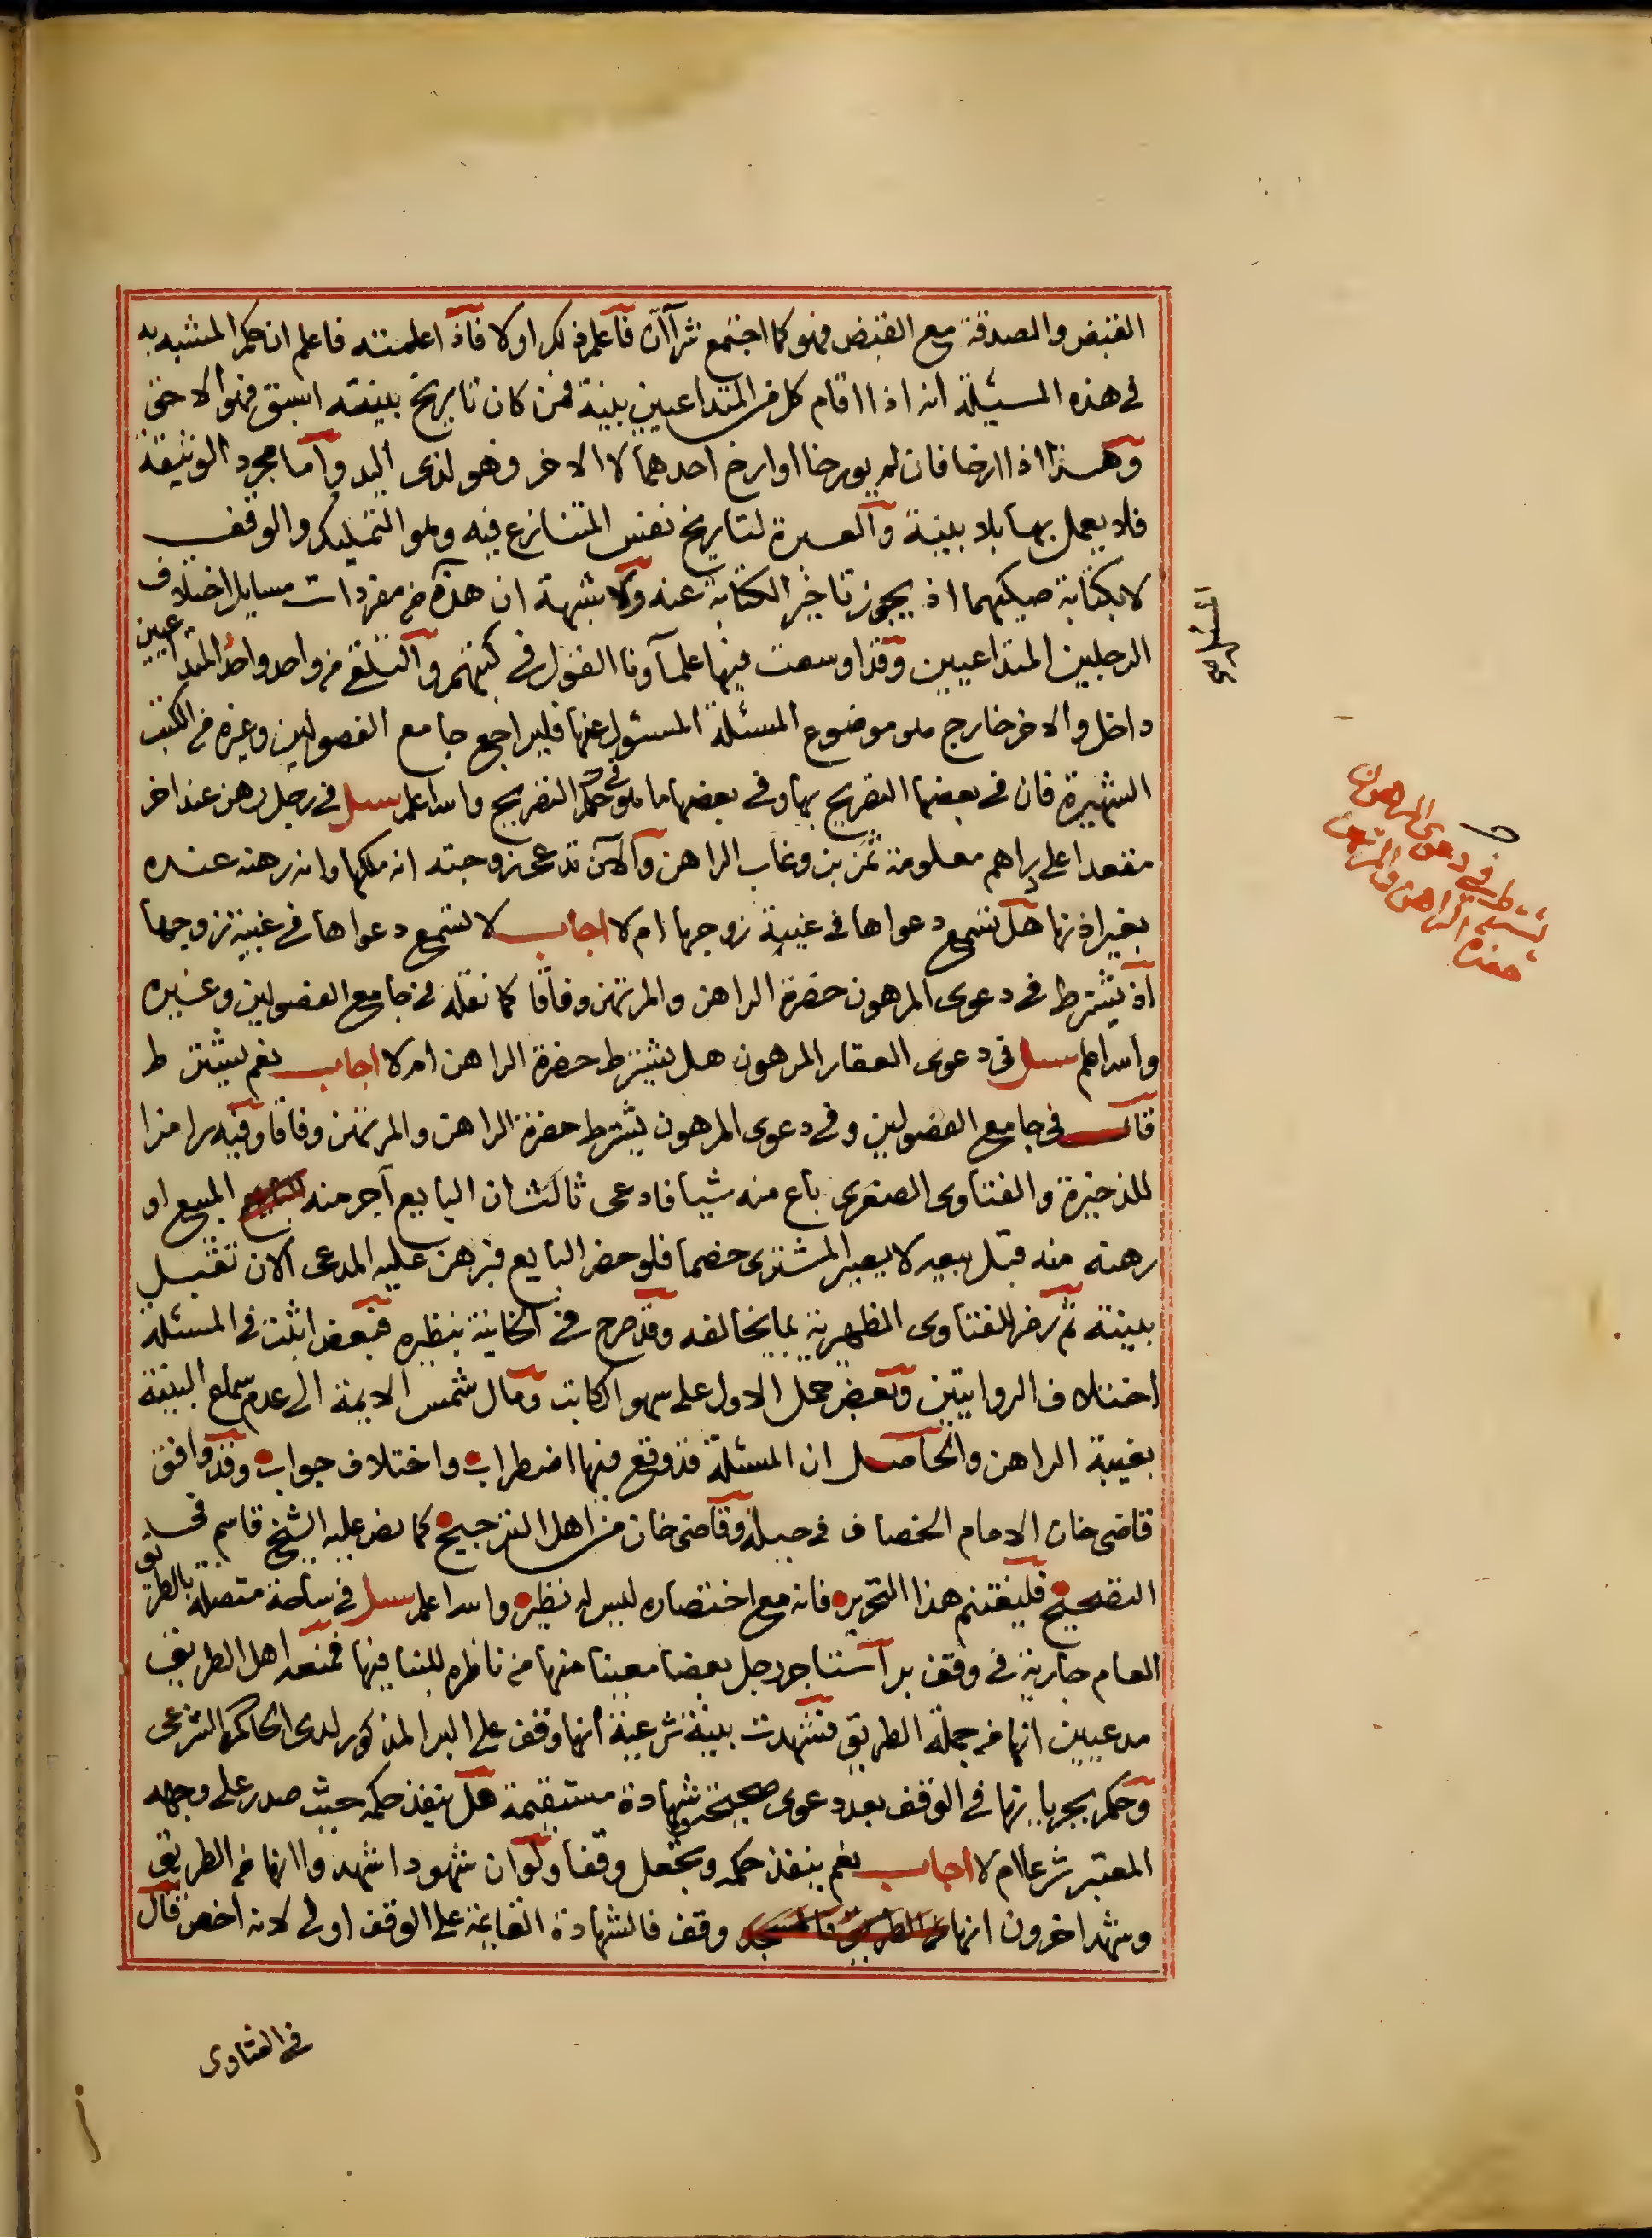 القبض والصدقة مع القبض فهو كما اجتمع شرا آن فاعلم ذلك اولا فاذا اعلمته فاعلم ان حكم المشبه به
في هذه المسئلة انه اذا اقام كل من المتداعيين بينة فمن كان تاريخ بينته اسبق فهو الاحق
وهذا اذا ارخا فان لم يورخا او ارخ احدهما لا الاخر فهو لذى اليد واما مجرد الوثيقة
فلا يعمل بها بلا بينة والعبرة لتاريخ نفس المتنازع فيه وهو التمليك والوقف
لا بكتابة صكيهما اذ يجوز تاخير الكتابة عنه ولا شبهة ان هذه من مفردات مسايل اختلاف
الرجلين المتداعيين وقد اوسعت فيها علماونا القول في كتبهم والتلقي من واحد واحد المتداعيين
داخل والاخر خارج هو موضوع المسئلة المسئول عنها فليراجع جامع الفصولين وغيره من الكتب
الشهيرة فان في بعضها التصريح بها وفي بعضها ما هو في حكم التصريح والله اعلم سيل في رجل رهن عند اخر
مقعدا على دراهم معلومة ثمن بن وغاب الراهن والان تدعى زوجته انه ملكها وانه رهنه عنده
بغير اذنها هل تسمع دعواها في غيبة زوجها ام لا اجاب لا تسمع دعواها في غيبة زوجها
اذ يشترط في دعوى المرهون حضرة الراهن والمرتهن وفاقا كما نقله في جامع الفصولين وغيره
والله اعلم سيل في دعوى العقار المرهون هل يشترط حضرة الراهن ام لا اجاب نعم يشترط
قال في جامع الفصولين وفي دعوى المرهون يشترط حضرة الراهن والمرتهن وفاقا وفيه رامزا
للذخيرة والفتاوى الصغرى باع منه شيا فادعى ثالث ان البايع آجر منه المبيع او
رهنه منه قبل بيعه لا يصير المشترى خصما فلو حضر البايع فبرهن عليه المدعى الان تقبل
بينته ثم رمز للفتاوى الظهيرية بما يخالفه وقد صرح في الخانية بنظيره فبعض اثبت في المسئلة
اختلاف الروايتين وبعض حمل الاول على سهو الكاتب ومال شمس الايمة الى عدم سماع البينة
بغيبة الراهن والحاصل ان المسئلة قد وقع فيها اضطراب واختلاف جواب وقد وافق
قاضى خان الامام الخصاف في حيله وقاضى خان من اهل الترجيح كما نص عليه الشيخ قاسم في
التصحيح فليغتنم هذا التحرير فانه مع اختصاره ليس له نظير والله اعلم سيل في ساحة متصلة بالطريق
العام جارية في وقف بر استاجر رجل بعضا معينا منها من ناظره للبنا فيها فمنعه اهل الطريق
مدعيين انها من جملة الطريق فشهدت بينة شرعية انها وقف على البر المذكور لدى الحاكم الشرعى
وحكم بجريانها في الوقف بعد دعوى صحيحة وشهادة مستقيمة هل ينفذ حكمه حيث صدر على وجهه
المعتبر شرعا ام لا اجاب نعم ينفذ حكمه وتجعل وقفا ولو ان شهودا شهدوا انها من الطريق
وشهد اخرون انها وقف فالشهادة القايمة على الوقف اولى لانه اخص قال
في الفتاوى
يشترط في دعوى المرهون
حضرة الراهن والمرتهن